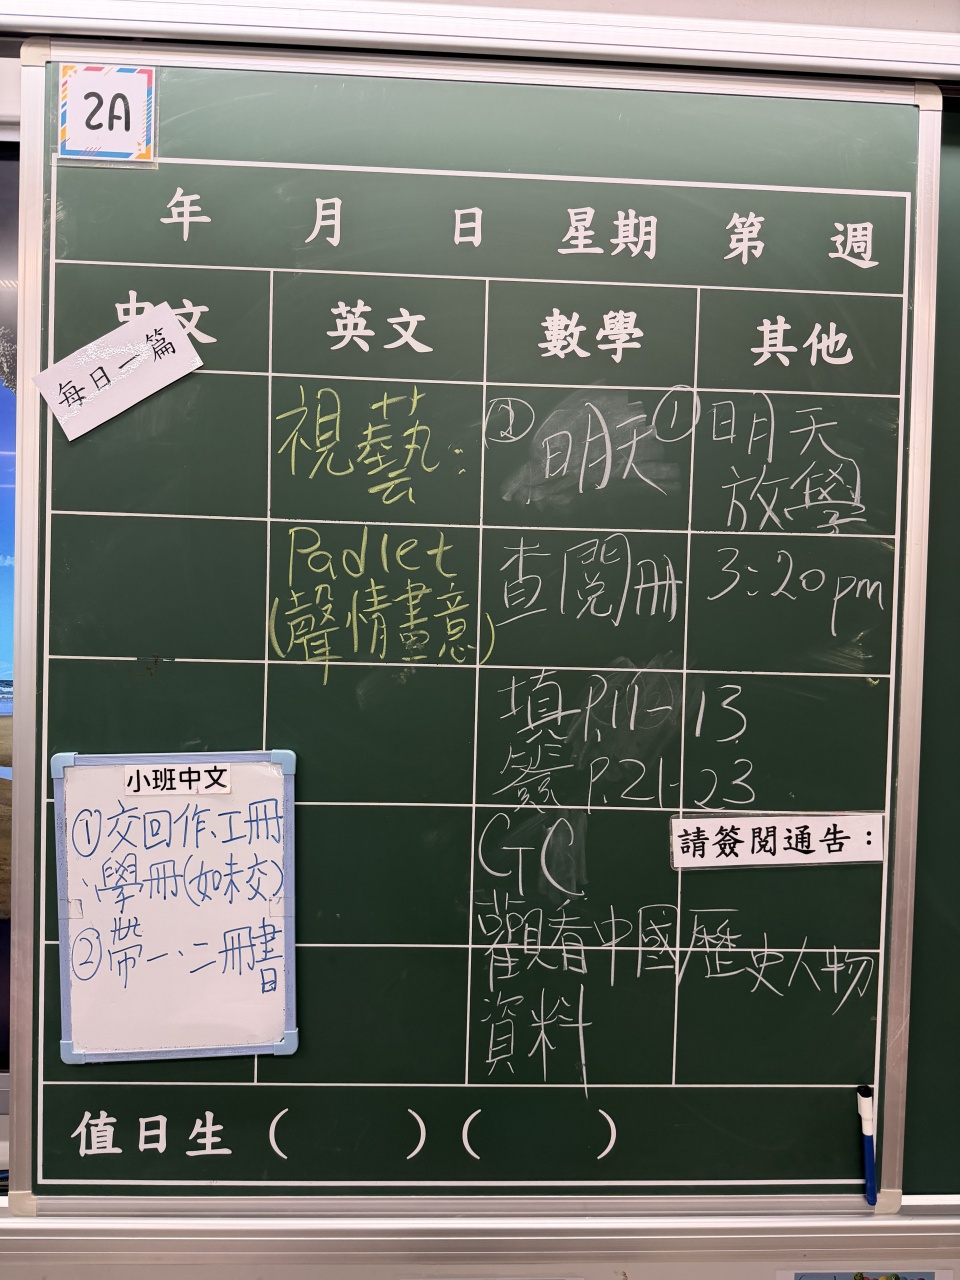 2A
年 月 日 星期 第 週
中文 英文 數學 其他
每日一篇
視藝:
Padlet
(聲情畫意)
① 明天
放學
3:20pm
② 明天
查閱冊
填P.11-13
簽P.21-23
GC
觀看中國歷史人物
資料
請簽閱通告:
小班中文
①交回作、工冊
、學冊(如未交)
②帶一、二冊書
值日生 ( ) ( )